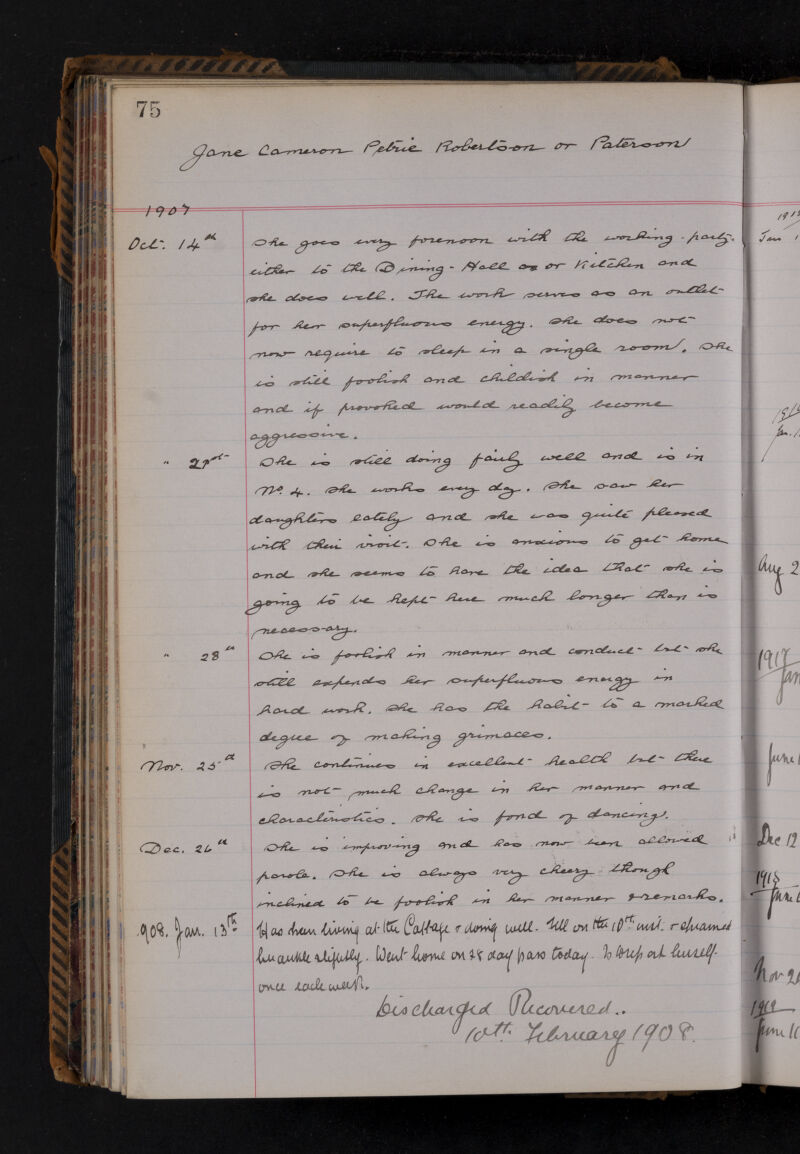 75
Jane Cameron Petrie Robertson or Paterson
1907
Oct. 14th She goes every forenoon with the working-party
either to the Dining-Hall or Kitchen and
she does well. The work serves as an outlet
for her superfluous energy. She does not
now require to sleep in a single room. She
is still foolish and childish in manner
and if provoked would readily become
aggressive.
" 21st She is still doing fairly well and is in
No. 4. She works every day. She saw her
daughters lately and she was quite pleased
with their visit. She is anxious to get home
and she seems to have the idea that she is
going to be kept here much longer than is
necessary.
" 28th She is foolish in manner and conduct but she
still expends her superfluous energy in
hard work. She has the habit to a marked
degree of making grimaces.
Nov. 25th She continues in excellent health but there
is not much change in her manner and
characteristics. She is fond of dancing.
Dec. 26th She is improving and has now been allowed
parole. She is always very cheery though
inclined to be foolish in her manner & remarks.
908. Jan. 13th Has been living at the Cottage & doing well. Fell on the 10th inst. & sprained
her ankle slightly. Went home on 28 day pass today. To report herself
once each week.
Discharged Recovered..
10th February 1908.
Jan
Aug 2
1917
Jan
June
Dec 12
1918
June
Nov 2
1919
June